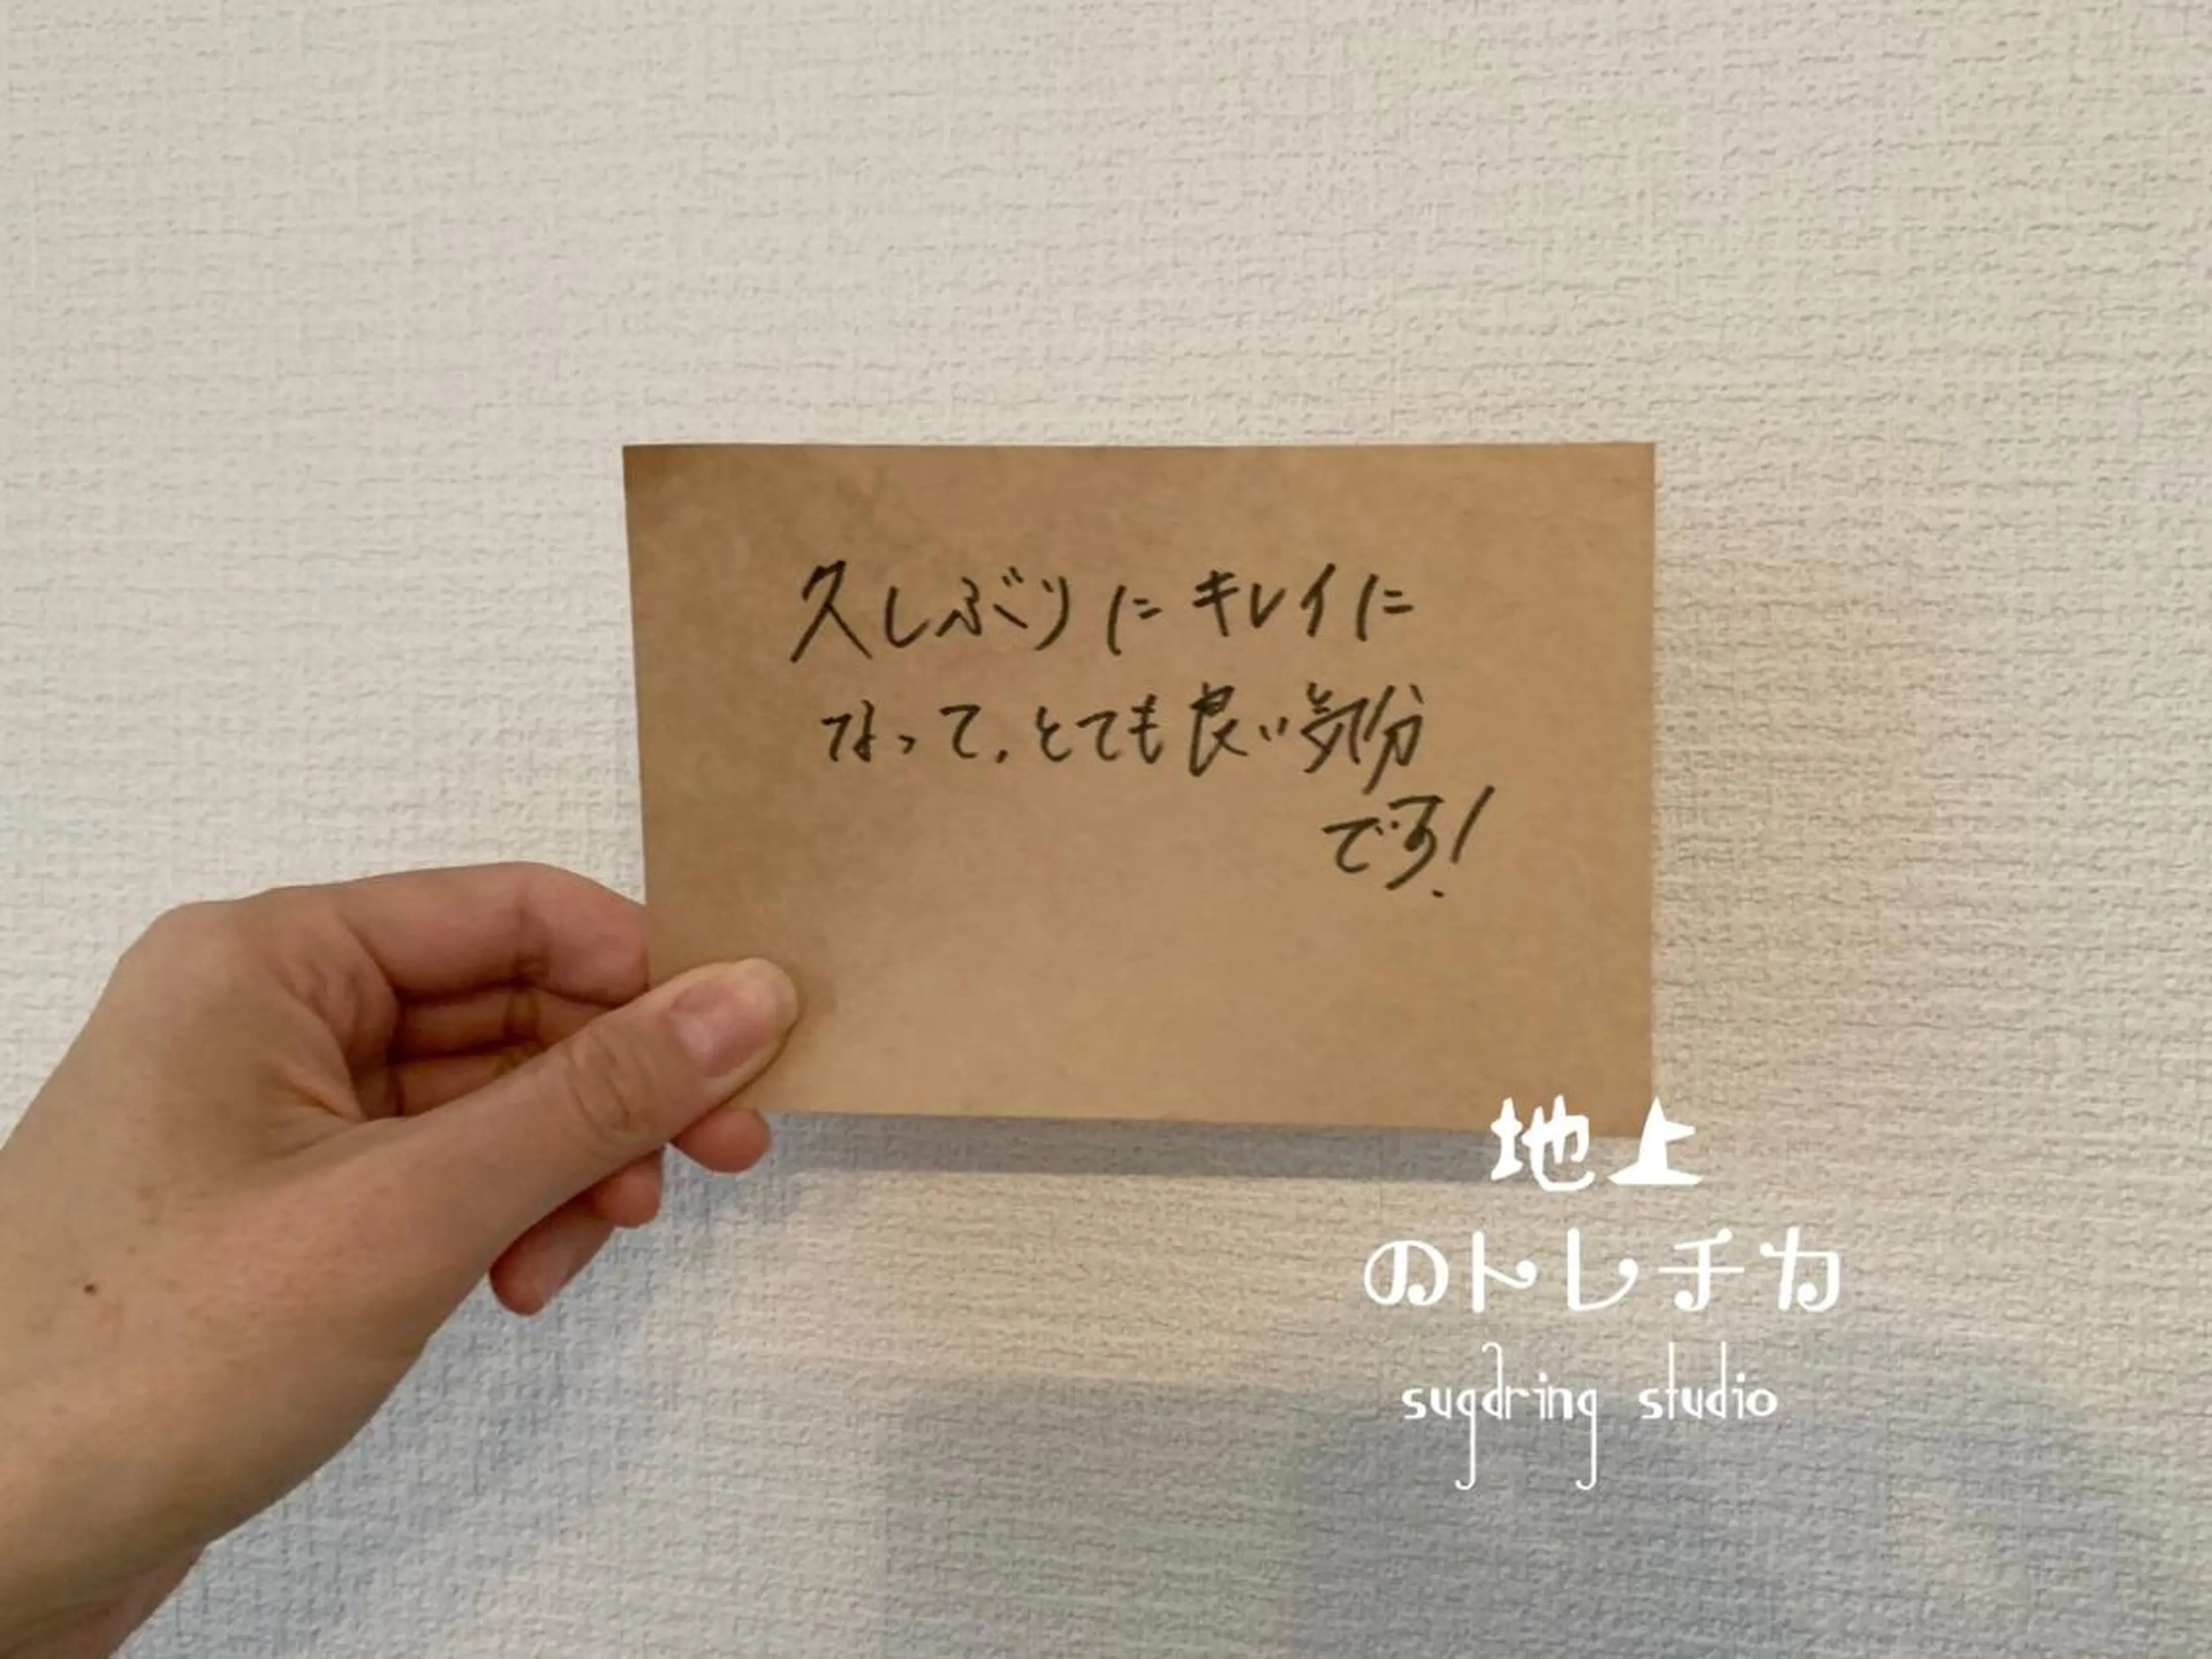 久しぶりにキレイに
なって、とても良い気分
です!
地上
のトレチカ
sugaring studio